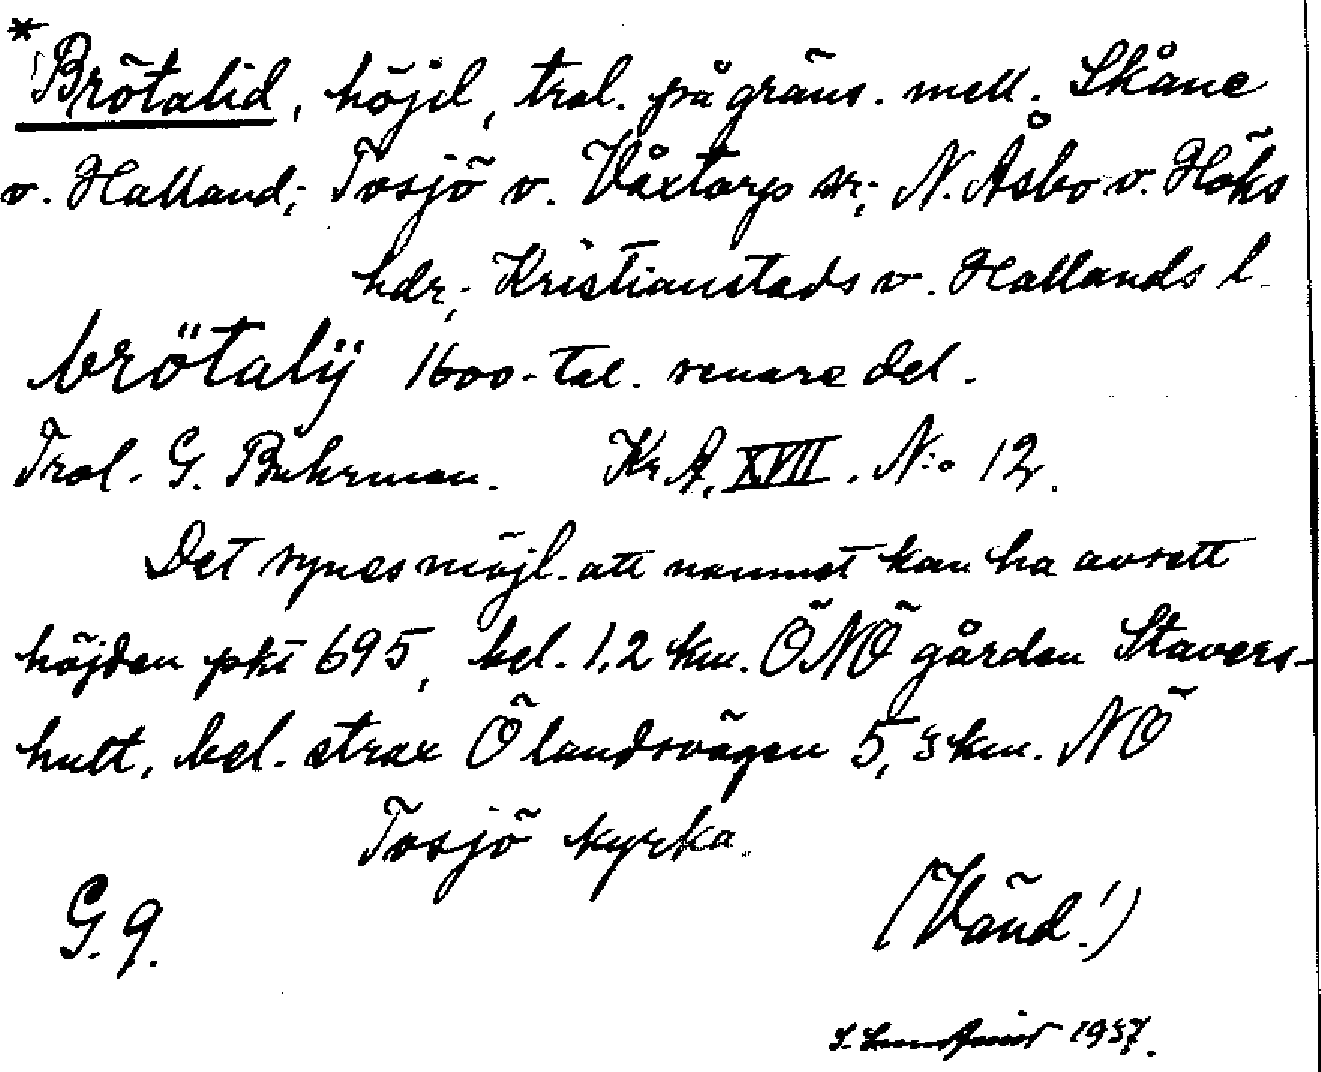 *
Brötalid, höjd, trol. på gräns. mell. Skåne
o. Halland; Tosjö o. Våxtorp sn; N. Åsbo o. Höks
hdr; Kristianstads o. Hallands l.
brötalÿ 1600-tal. senare del.
Trol. G. Buhrman. Kr. A. XVII. N:o 12.
Det synes möjl. att namnet kan ha avsett
höjden pkt 695, bel. 1,2 km. ÖNÖ gården Stavers-
hult, bel. strax Ö landsvägen 5,3 km. NÖ
Tosjö kyrka.
G. 9. (Vänd!)
1957.